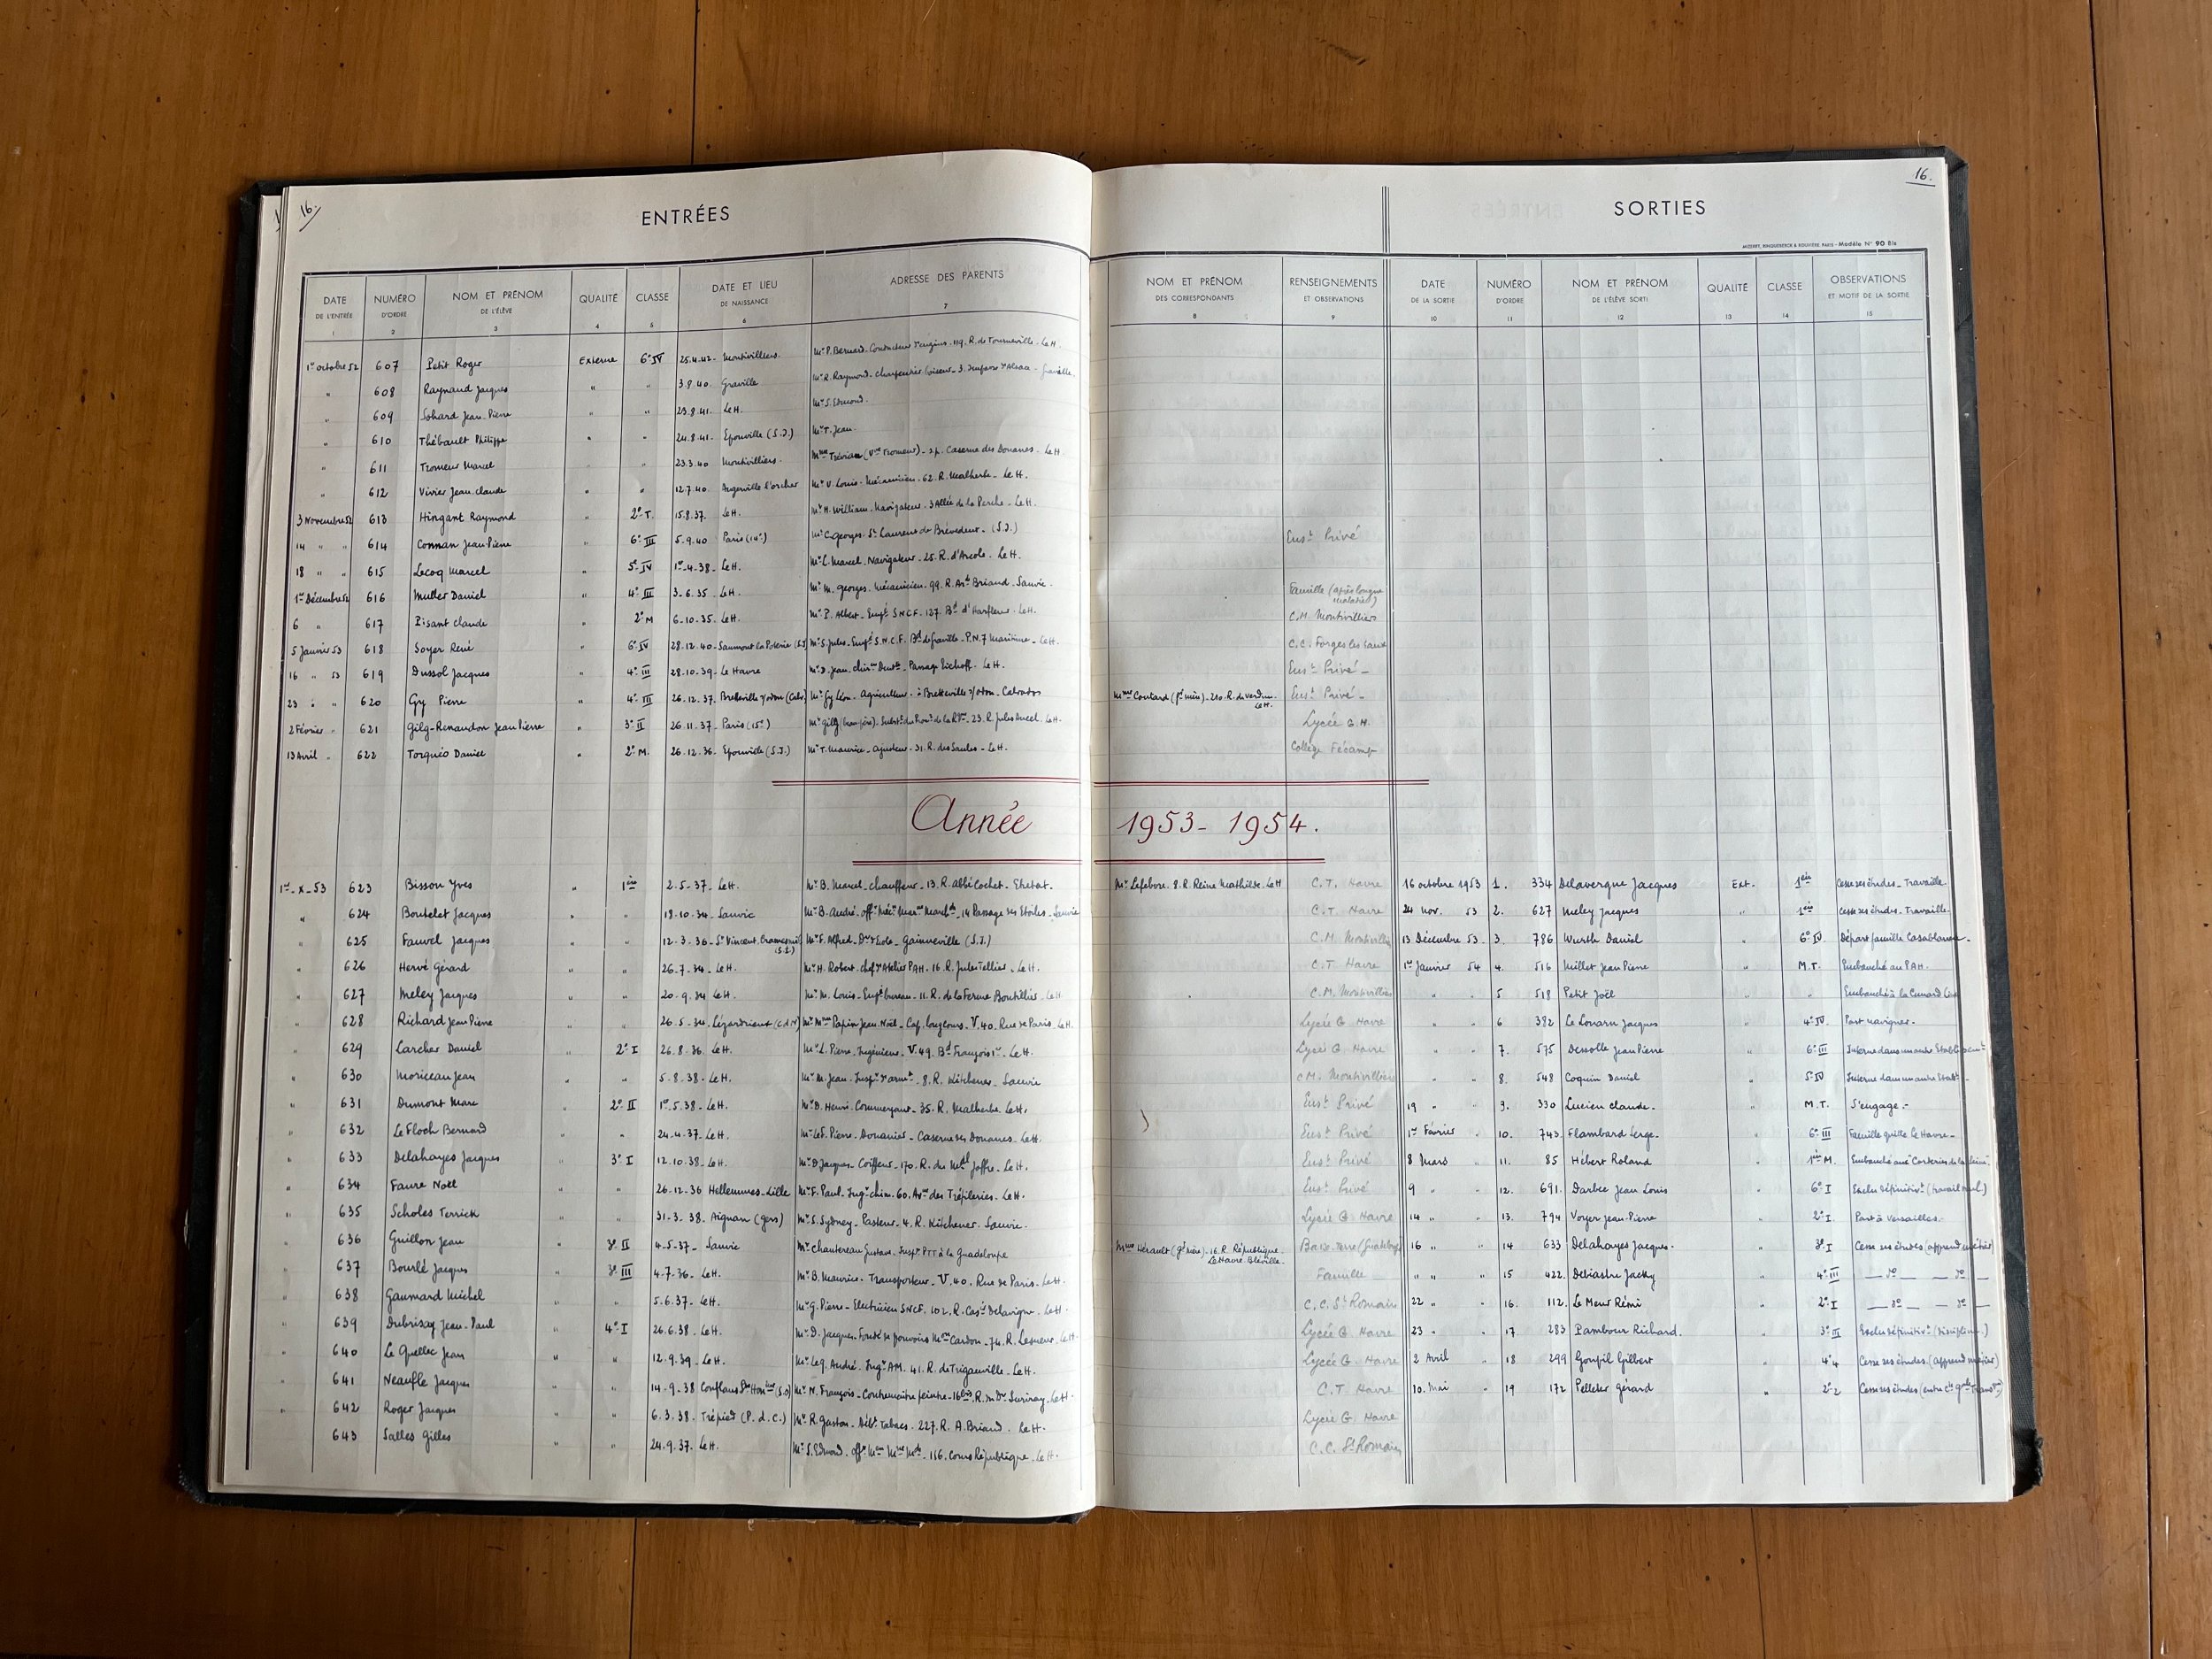 16.
ENTRÉES
SORTIES
16.
Modèle N° 90 Bis
DATE DE L'ENTRÉE 1
NUMÉRO D'ORDRE 2
NOM ET PRÉNOM DE L'ÉLÈVE 3
QUALITÉ 4
CLASSE 5
DATE ET LIEU DE NAISSANCE 6
ADRESSE DES PARENTS 7
NOM ET PRÉNOM DES CORRESPONDANTS 8
RENSEIGNEMENTS ET OBSERVATIONS 9
DATE DE LA SORTIE 10
NUMÉRO D'ORDRE 11
NOM ET PRÉNOM DE L'ÉLÈVE SORTI 12
QUALITÉ 13
CLASSE 14
OBSERVATIONS ET MOTIF DE LA SORTIE 15
1er octobre 52 607 Petit Roger Externe 6e IV 25.4.42 - Montivilliers. Mr P. Bernard. Conducteur d'engins. 119. R. de Tourneville. Le H.
" 608 Raynaud Jacques " " 3.8.40. Graville Mr R. Raymond. Charpentier
" 609 Sohard Jean-Pierre " " 23.8.41. Le H. Mr S. Edmond.
" 610 Thébault Philippe " " 24.8.41. Epouville (S.I.) Mr T. Jean.
" 611 Tromeur Marcel " " 23.3.40 Montivilliers. Caserne des Douanes. Le H.
" 612 Vivier Jean-Claude " " 12.7.40. Angerville l'orcher Mr V. Louis. Mécanicien. 62. R. Malherbe. Le H.
3 Novembre 52 613 Hingant Raymond " 2e T. 15.8.37. Le H. Mr H. William. Navigateur. 3 Allée de la Perche. Le H.
14 " " 614 Connan Jean-Pierre " 6e III 5.9.40 Paris (14e) Mr C. Georges. St Laurent de Brévedent. (S.I.) Enst Privé
18 " " 615 Lecoq Marcel " 5e IV 1er-4-38. Le H. Mr L. Marcel. Navigateur. 25. R. d'Arcole. Le H.
1er Décembre 52 616 Muller Daniel " 4e III 3.6.35. Le H. Mr M. Georges. Mécanicien. 99. R. Ar. Briand. Sanvic. Famille (après longue maladie)
6 " 617 Pisant Claude " 2e M 6-10-35. Le H. Mr P. Albert. Empé S.N.C.F. 127. Bd d'Harfleur. Le H. C.M. Montivilliers
5 Janvier 53 618 Soyer René " 6e IV 28.12.40 - Saumont la Poterie (S.I.) Mr S. Jules. Empé S.N.C.F. Bd de Graville. P.N.7 Maritime. Le H. C.C. Forges les Eaux
16 " 53 619 Dussol Jacques " 4e III 28.10.39 - Le Havre Mr D. Jean. Passage Eichoff. Le H. Enst Privé -
23 " " 620 Gy Pierre " 4e III 26.12.37. Bretteville s/odon (Calv.) Mr Gy Léon. Agriculteur. à Bretteville s/odon. Calvados Mme Coutard (gd mère). 210. R. de Verdun. Le H. Enst Privé -
2 Février " 621 Gilg-Renaudon Jean Pierre " 3e II 26.11.37. Paris (15e) 23. R. Jules Ancel. Le H. Lycée G. H.
13 Avril " 622 Torquéo Daniel " 2e M. 26.12.36. Epouville (S.I.) Mr T. Maurice. Ajusteur. 31. R. des Saules. Le H. Collège Fécamp
Année 1953-1954.
1er-X-53 623 Bisson Yves " 1ère 2.5.37. Le H. Mr B. Marcel. chauffeur. 13. R. Abbé Cochet. Etretat. Mr Lefebvre. 8. R. Reine Mathilde. Le H C.T. Havre 16 octobre 1953 1. 334 Delavergne Jacques Ext. 1ère Cesse ses études. Travaille.
" 624 Boutelet Jacques " " 19.10.34. Sanvic Mr B. André. 14 Passage des Etoiles. Sanvic C.T. Havre 24 Nov. 53 2. 627 Meley Jacques " 1ère Cesse ses études. Travaille.
" 625 Fauvel Jacques " " 12.3.36. St Vincent Cramesnil (S.I.) Mr F. Alfred. Dr d'Ecole. Gainneville (S.I.) C.M. Montivilliers 13 Décembre 53. 3. 786 Wurth Daniel " 6e IV. Départ famille Casablanca.
" 626 Hervé Gérard " " 26.7.34. Le H. Mr H. Robert. chef d'Atelier PAH. 16. R. Jules Tellier. Le H. C.T. Havre 1er Janvier 54 4. 516 Millet Jean Pierre " M.T. Embauché au PAH.
" 627 Meley Jacques " " 20.9.34 Le H. Mr M. Louis. Empé bureau. 11. R. de la Ferme Boutillier. Le H. C.M. Montivilliers " " 5 518 Petit Joël " " Embauché à la Cunard Line
" 628 Richard Jean Pierre " " 26.5.34. Lézardrieux (C.d.N) Cap. long cours. V.40. Rue de Paris. Le H. Lycée G. Havre " " 6 382 Le Louarn Jacques " 4e IV. Part naviguer.
" 629 Larcher Daniel " 2e I 26.8.36. Le H. Mr L. Pierre. Ingénieur. V.49. Bd François 1er. Le H. Lycée G. Havre " " 7. 575 Dessolle Jean Pierre " 6e III Interne dans un autre Etablissement
" 630 Moriceau Jean " " 5.8.38. Le H. Mr M. Jean. 8. R. Kitchener. Sanvic C.M. Montivilliers " " 8. 548 Coquin Daniel " 5e IV Interne dans un autre Etabt
" 631 Dumont Marc " 2e II 1er.5.38. Le H. Mr D. Henri. Commerçant. 35. R. Malherbe. Le H. Enst Privé 19 " " 9. 330 Lucien Claude. " M.T. S'engage.
" 632 Le Floch Bernard " " 24.4.37. Le H. Mr Le F. Pierre. Douanier. Caserne des Douanes. Le H. Enst Privé 1er Février " 10. 743 Flambard Serge. " 6e III Famille quitte Le Havre.
" 633 Delahayes Jacques " 3e I 12.10.38. Le H. Mr D. Jacques. Coiffeur. 170. R. du Mal Joffre. Le H. Enst Privé 8 Mars " 11. 85 Hébert Roland " 1ère M. Embauché aux "Corderies de la Seine"
" 634 Faure Noël " " 26.12.36 Hellemmes-Lille Mr F. Paul. Ingr chim. 60. Ave des Tréfileries. Le H. Enst Privé 9 " " 12. 691. Darbee Jean Louis " 6e I Exclu définitivt (travail nul)
" 635 Scholes Terrick " " 31.3.38. Aignan (Gers) Mr S. Sydney. Pasteur. 4. R. Kitchener. Sanvic. Lycée G. Havre 14 " " 13. 794 Voyer Jean-Pierre " 2e I. Part à Versailles.
" 636 Guillon Jean " 3e II 4.5.37. Sanvic Mr Chantereau Gustave. Inspr PTT à la Guadeloupe Mme Hérault (gd mère). 16. R. République. Le Havre. Bléville. Basse-Terre (Guadeloupe) 16 " " 14 633 Delahayes Jacques. " 3e I Cesse ses études (apprend métier)
" 637 Bourlé Jacques " 3e III 4.7.36. Le H. Mr B. Maurice. Transporteur. V.40. Rue de Paris. Le H. Famille " " " 15 422. Debiastre Jacky " 4e III do do
" 638 Gaumard Michel " " 5.6.37. Le H. Mr G. Pierre. Electricien SNCF. 102. R. Casr Delavigne. Le H. C.C. St Romain 22 " " 16. 112. Le Meur Rémi " 2e I do do
" 639 Dubrisay Jean-Paul " 4e I 26.6.38. Le H. Mr D. Jacques. Fondé de pouvoirs Mon Cardon. 74. R. Lesueur. Le H. Lycée G. Havre 23 " " 17 283 Pambour Richard. " 3e III Exclu définitivt (discipline)
" 640 Le Quellec Jean " " 12.9.39. Le H. Mr Le Q. André. Ingr AM. 41. R. de Trigauville. Le H. Lycée G. Havre 2 Avril " 18 299 Goupil Gilbert " 4e4 Cesse ses études. (apprend métier)
" 641 Neaufle Jacques " " 14.9.38 Mr N. François. Contremaître peintre. 16bis. R. du Dr Suriray. Le H. C.T. Havre 10. Mai " 19 172 Pelletier Gérard " 2e2 Cesse ses études
" 642 Roger Jacques " " 6.3.38. Trépied (P.d.C.) Mr R. Gaston. Débt Tabacs. 227. R. A. Briand. Le H. Lycée G. Havre
" 643 Salles Gilles " " 24.9.37. Le H. Mr S. Edmond. 116. Cours République. Le H. C.C. St Romain